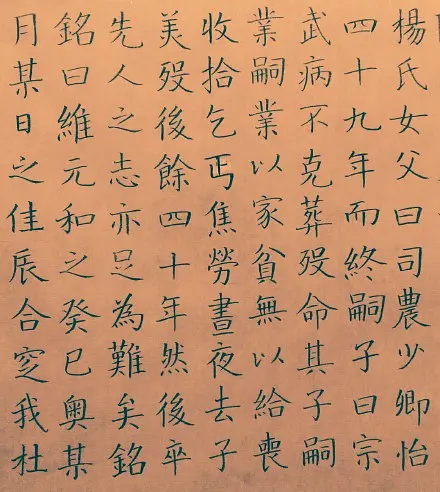 楊氏女父曰司農少卿怡
四十九年而終嗣子曰宗
武病不克葬歿命其子嗣
業嗣業以家貧無以給喪
收拾乞丐焦勞晝夜去子
美歿後餘四十年然後卒
先人之志亦足為難矣銘
銘曰維元和之癸巳奧某
月某日之佳辰合窆我杜